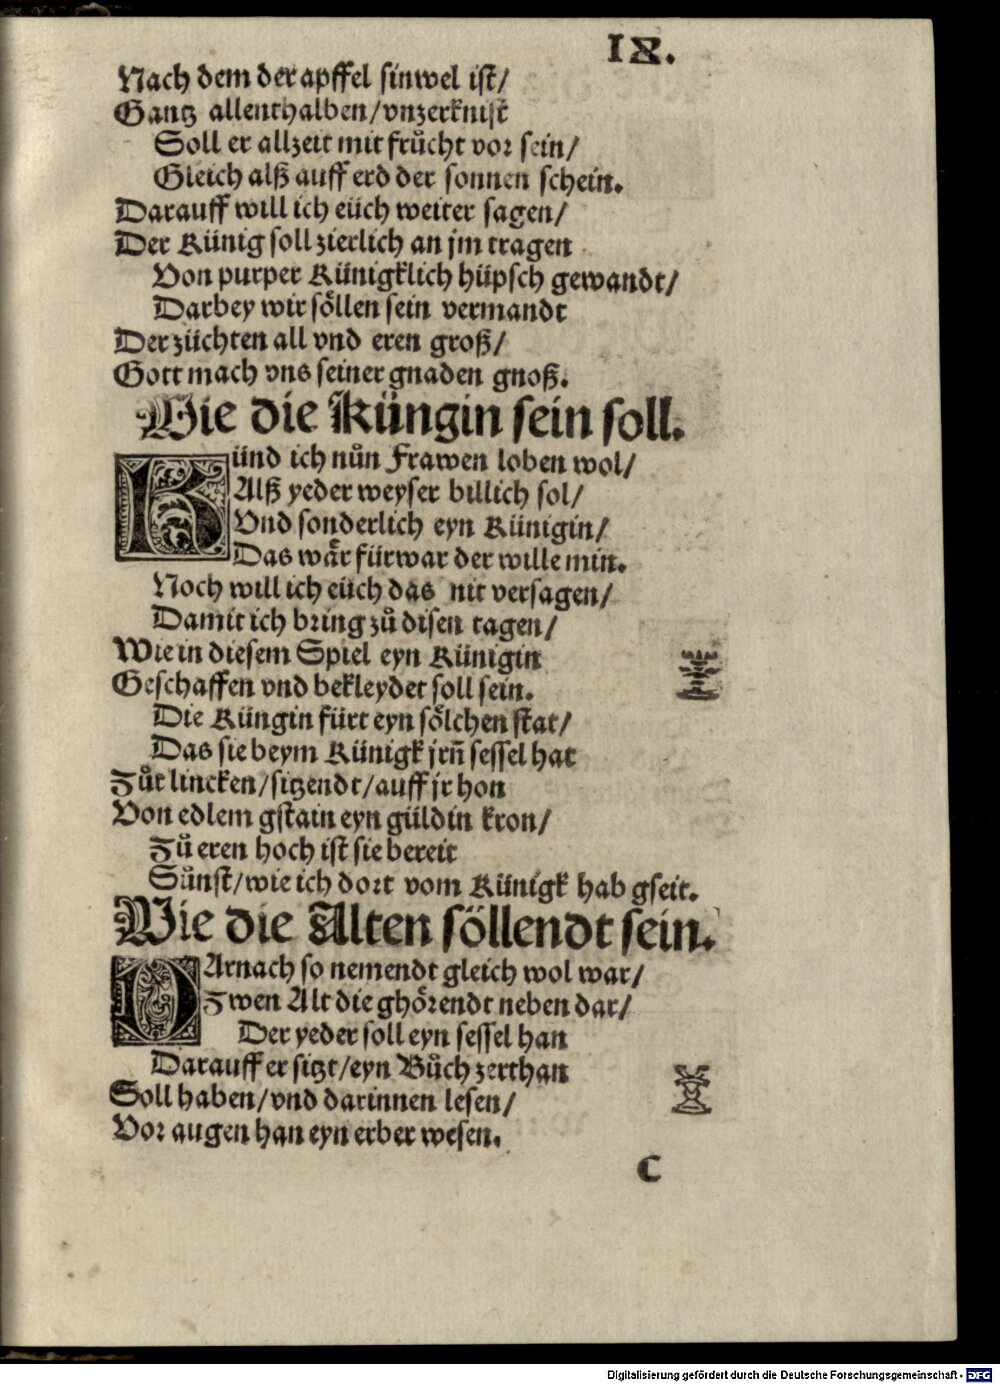 IX.
Nach dem der apffel sinwel ist/
Gantz allenthalben/vnzerknist
Soll er allzeit mit frücht vor sein/
Gleich alß auff erd der sonnen schein.
Darauff will ich eüch weiter sagen/
Der Künig soll zierlich an jm tragen
Von purper Künigklich hüpsch gewandt/
Darbey wir söllen sein vermandt
Der züchten all vnd eren groß/
Gott mach vns seiner gnaden gnoß.
Wie die Küngin sein soll.
Künd ich nůn Frawen loben wol/
Alß yeder weyser billich sol/
Vnd sonderlich eyn Künigin/
Das wär fürwar der wille min.
Noch will ich eüch das nit versagen/
Damit ich bring zů disen tagen/
Wie in diesem Spiel eyn Künigin
Geschaffen vnd bekleydet soll sein.
Die Küngin fürt eyn sölchen stat/
Das sie beym Künigk jrn̄ sessel hat
Zůr lincken/sitzendt/auff jr hon
Von edlem gstain eyn güldin kron/
Zů eren hoch ist sie bereit
Sůnst/wie ich dort vom Künigk hab gseit.
Wie die Alten söllendt sein.
DArnach so nemendt gleich wol war/
Zwen Alt die ghörendt neben dar/
Der yeder soll eyn sessel han
Darauff er sitzt/eyn Bůch zerthan
Soll haben/vnd darinnen lesen/
Vor augen han eyn erber wesen.
C
Digitalisierung gefördert durch die Deutsche Forschungsgemeinschaft - DFG